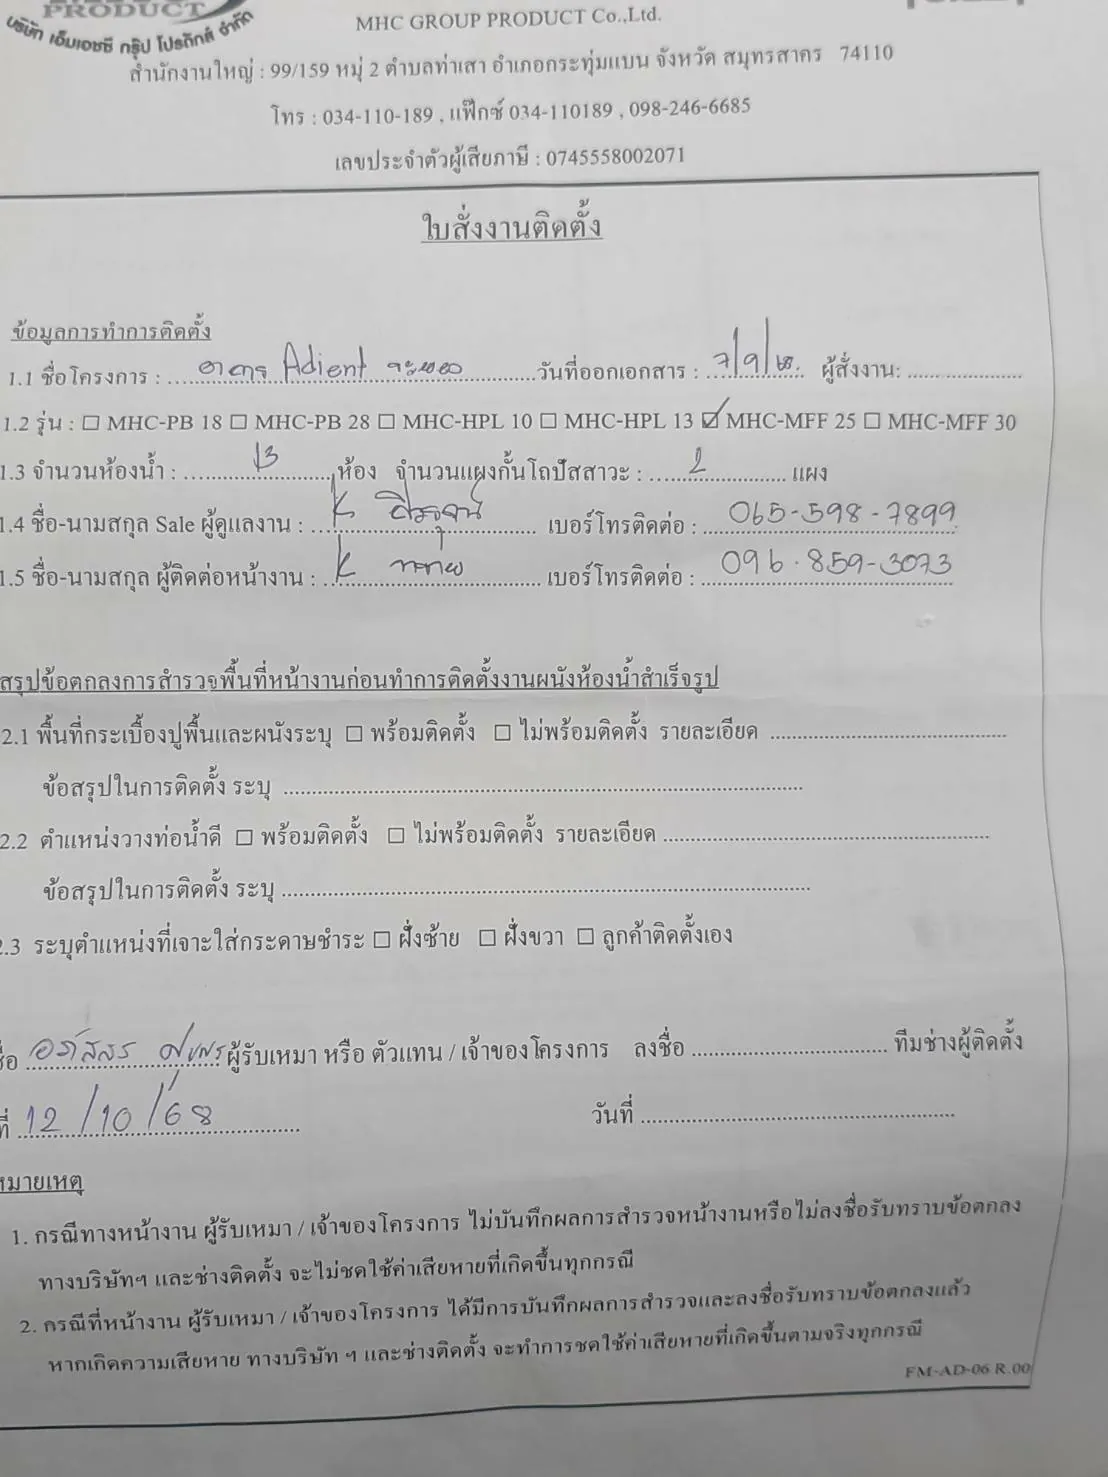 PRODUCT
บริษัท เอ็มเอชซี กรุ๊ป โปรดักส์ จำกัด
MHC GROUP PRODUCT Co.,Ltd.
สำนักงานใหญ่ : 99/159 หมู่ 2 ตำบลท่าเสา อำเภอกระทุ่มแบน จังหวัด สมุทรสาคร 74110
โทร : 034-110-189 , แฟ๊กซ์ 034-110189 , 098-246-6685
เลขประจำตัวผู้เสียภาษี : 0745558002071
ใบสั่งงานติดตั้ง
ข้อมูลการทำการติดตั้ง
1.1 ชื่อโครงการ : อาคาร Adient ระยอง วันที่ออกเอกสาร : 7/9/68. ผู้สั่งงาน: ........................
1.2 รุ่น : ☐ MHC-PB 18 ☐ MHC-PB 28 ☐ MHC-HPL 10 ☐ MHC-HPL 13 ☑ MHC-MFF 25 ☐ MHC-MFF 30
1.3 จำนวนห้องน้ำ : 13 ห้อง จำนวนแผงกั้นโถปัสสาวะ : 2 แผง
1.4 ชื่อ-นามสกุล Sale ผู้ดูแลงาน : K เบอร์โทรติดต่อ : 065-598-7899
1.5 ชื่อ-นามสกุล ผู้ติดต่อหน้างาน : K เบอร์โทรติดต่อ : 096-859-3073
สรุปข้อตกลงการสำรวจพื้นที่หน้างานก่อนทำการติดตั้งงานผนังห้องน้ำสำเร็จรูป
2.1 พื้นที่กระเบื้องปูพื้นและผนังระบุ ☐ พร้อมติดตั้ง ☐ ไม่พร้อมติดตั้ง รายละเอียด ........................
ข้อสรุปในการติดตั้ง ระบุ ........................
2.2 ตำแหน่งวางท่อน้ำดี ☐ พร้อมติดตั้ง ☐ ไม่พร้อมติดตั้ง รายละเอียด ........................
ข้อสรุปในการติดตั้ง ระบุ ........................
2.3 ระบุตำแหน่งที่เจาะใส่กระดาษชำระ ☐ ฝั่งซ้าย ☐ ฝั่งขวา ☐ ลูกค้าติดตั้งเอง
ชื่อ อภัสสร ผู้รับเหมา หรือ ตัวแทน / เจ้าของโครงการ ลงชื่อ ........................ ทีมช่างผู้ติดตั้ง
ที่ 12/10/68 วันที่ ........................
หมายเหตุ
1. กรณีทางหน้างาน ผู้รับเหมา / เจ้าของโครงการ ไม่บันทึกผลการสำรวจหน้างานหรือไม่ลงชื่อรับทราบข้อตกลง
ทางบริษัทฯ และช่างติดตั้ง จะไม่ชดใช้ค่าเสียหายที่เกิดขึ้นทุกกรณี
2. กรณีที่หน้างาน ผู้รับเหมา / เจ้าของโครงการ ได้มีการบันทึกผลการสำรวจและลงชื่อรับทราบข้อตกลงแล้ว
หากเกิดความเสียหาย ทางบริษัท ฯ และช่างติดตั้ง จะทำการชดใช้ค่าเสียหายที่เกิดขึ้นตามจริงทุกกรณี
FM-AD-06 R.00